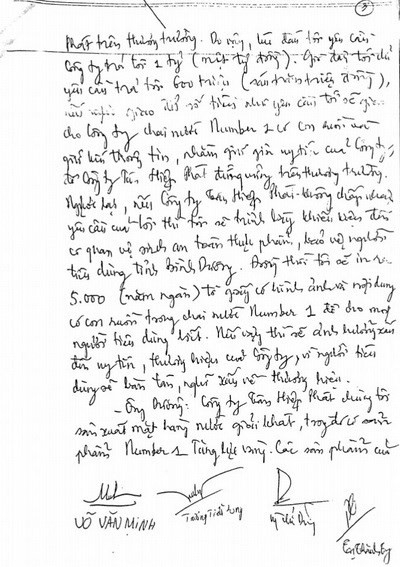 3
phát triển thương trường. Do vậy, lúc đầu tôi yêu cầu
Công ty trả tôi 1 tỷ (một tỷ đồng). Giờ đây tôi chỉ
yêu cầu trả tôi 600 triệu (sáu trăm triệu đồng),
nếu giao đủ số tiền như yêu cầu tôi sẽ giao
cho Công ty chai nước Number 1 có con ruồi và
giữ kín thông tin, nhằm giữ gìn uy tín của Công ty,
để Công ty Tân Hiệp Phát đứng vững trên thương trường.
Ngược lại, nếu Công ty Tân Hiệp Phát không chấp nhận
yêu cầu của tôi thì tôi sẽ trình bày khiếu kiện đến
cơ quan vệ sinh an toàn thực phẩm, bảo vệ người
tiêu dùng tỉnh Bình Dương. Đồng thời tôi sẽ in ra
5.000 (năm ngàn) tờ giấy có hình ảnh và nội dung
có con ruồi trong chai nước Number 1 để cho mọi
người tiêu dùng biết. Nếu vậy thì sẽ ảnh hưởng xấu
đến uy tín, thương hiệu của Công ty, vì người tiêu
dùng sẽ bàn tán, nghĩ xấu về thương hiệu.
- Ông Dương: Công ty Tân Hiệp Phát chúng tôi
sản xuất mặt hàng nước giải khát, trong đó có sản
phẩm Number 1 Tăng lực vàng. Các sản phẩm của
VÕ VĂN MINH